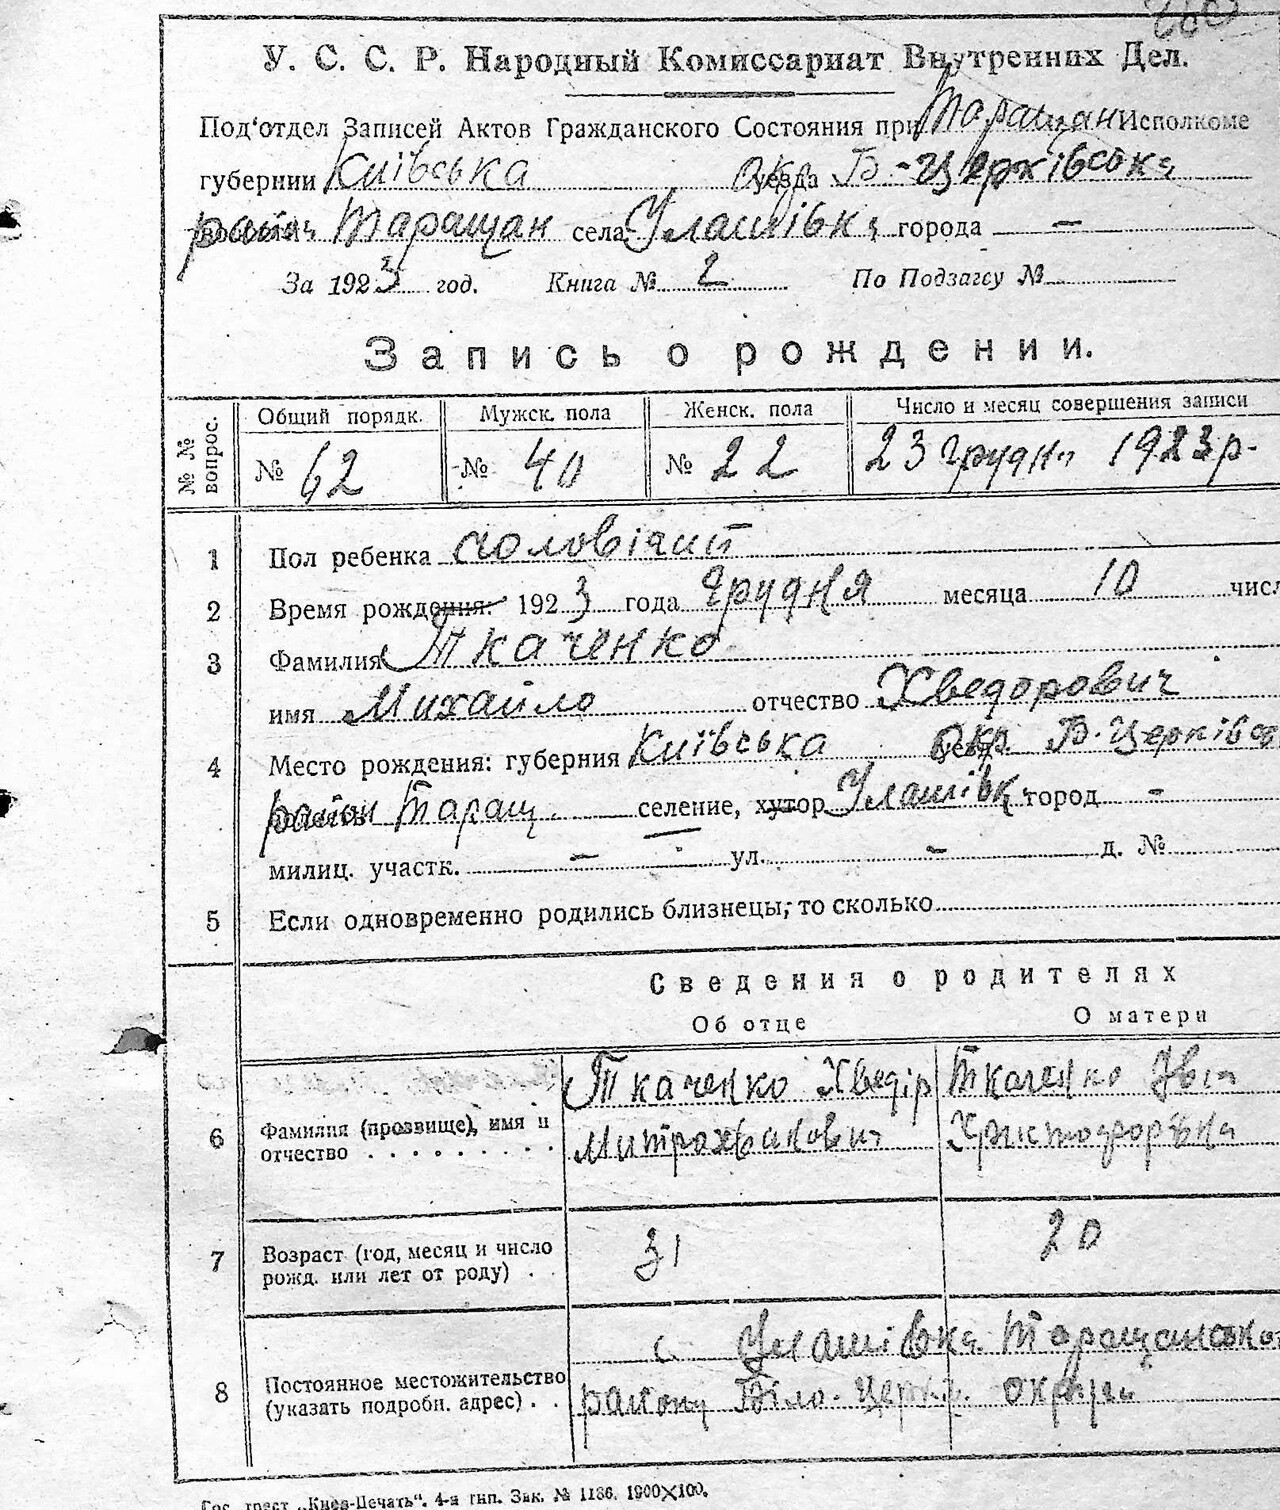 У. С. С. Р. Народный Комиссариат Внутренних Дел.
Под‘отдел Записей Актов Гражданского Состояния при Таращан Исполкоме
губернии Київська окр. уезда Б-Церківська
район Таращан села Улашівка города —
За 1923 год. Книга № 2 По Подзагсу №
Запись о рождении.
№ № вопрос. Общий порядк. Мужск. пола Женск. пола Число и месяц совершения записи
№ 62 № 40 № 22 23 грудня 1923 р.
1 Пол ребенка чоловічий
2 Время рождения: 1923 года Грудня месяца 10 числ
3 Фамилия Ткаченко
имя Михайло отчество Хведорович
4 Место рождения: губерния Київська окр. Б-Церківсь
район Таращ. селение, хутор Улашівка город —
милиц. участк. — ул. — д. №
5 Если одновременно родились близнецы, то сколько
Сведения о родителях
Об отце О матери
6 Фамилия (прозвище), имя и отчество Ткаченко Хведір Ткаченко
Митрохванович Христофорівна
7 Возраст (год, месяц и число рожд. или лет от роду) 31 20
8 Постоянное местожительство (указать подробн. адрес) с Улашівка Таращанськог
району Біло-Церків. округи
Гос. трест „Киев-Печать“. 4-я тип. Зак. № 1136. 1900×100.